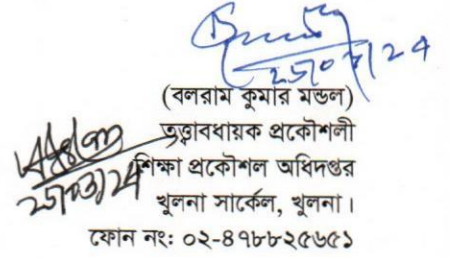 (বলরাম কুমার মন্ডল)
তত্ত্বাবধায়ক প্রকৌশলী
শিক্ষা প্রকৌশল অধিদপ্তর
খুলনা সার্কেল, খুলনা।
ফোন নং: ০২-৪৭৮৮২৫৬৫১